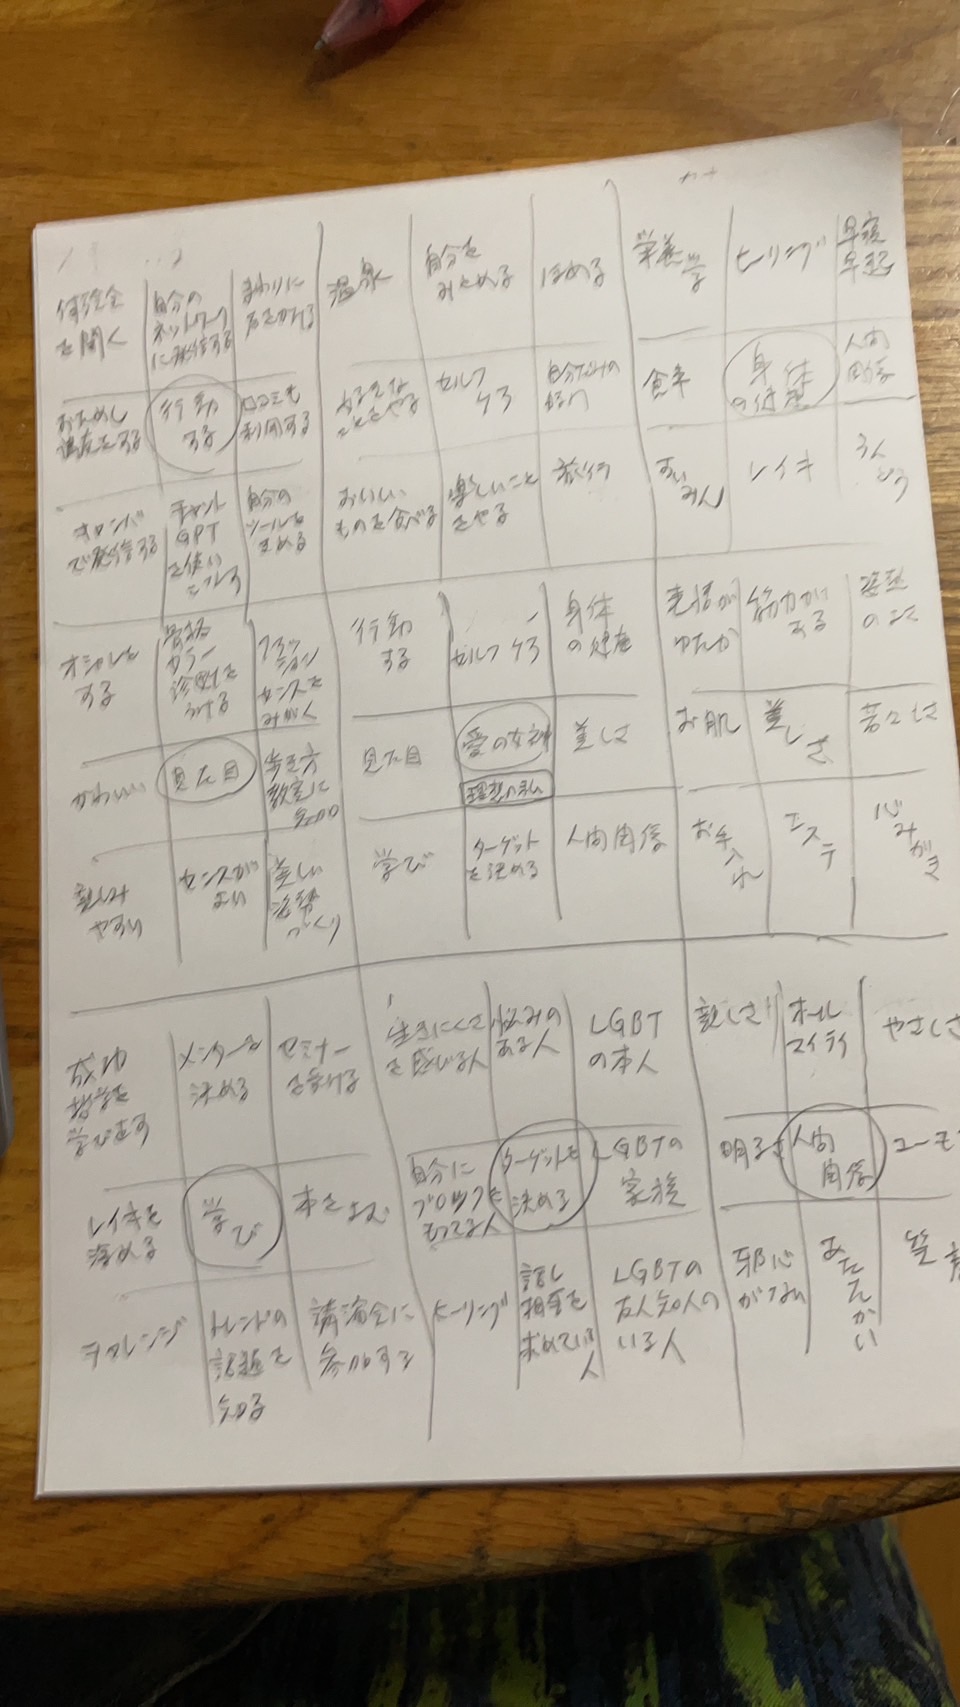 自分の
ネットワーク
に発信する
まわりに
声をかける
温泉
自分を
みとめる
ほめる
栄養学
ヒーリング
早寝
早起
を聞く
おためし
講座をする
行動
する
口コミも
利用する
好きな
ことをやる
セルフ
ケア
自分だけの
食事
身体
の健康
人間
関係
で発信する
チャット
GPT
を使い
こなす
自分の
ツールを
きめる
おいしい
ものを食べる
楽しいこと
をやる
旅行
すいみん
レイキ
うん
どう
オシャレを
する
骨格
カラー
診断を
うける
ファッ
ション
センスを
みがく
行動
する
セルフケア
身体
の健康
表情が
ゆたか
筋力が
ある
姿勢
のよさ
かわいい
見た目
歩き方
教室に
見た目
愛の女神
理想の私
美しさ
お肌
美しさ
若々しさ
親しみ
やすい
センスが
よい
美しい
姿勢
づくり
学び
ターゲット
を決める
人間関係
お手入れ
エステ
心みがき
成功
哲学を
学び直す
メンターを
決める
セミナー
を受ける
生きにくさ
を感じる人
悩みの
ある人
LGBT
の本人
親しさ
オール
マイティ
やさしさ
レイキを
深める
学び
本をよむ
自分に
ブロックを
もってる人
ターゲットを
決める
LGBTの
家族
明るさ
人間
関係
ユーモ
チャレンジ
トレンドの
話題を
知る
講演会に
参加する
ヒーリング
話し
相手を
求めている
人
LGBTの
友人知人の
いる人
邪心
がない
あたたかい
笑